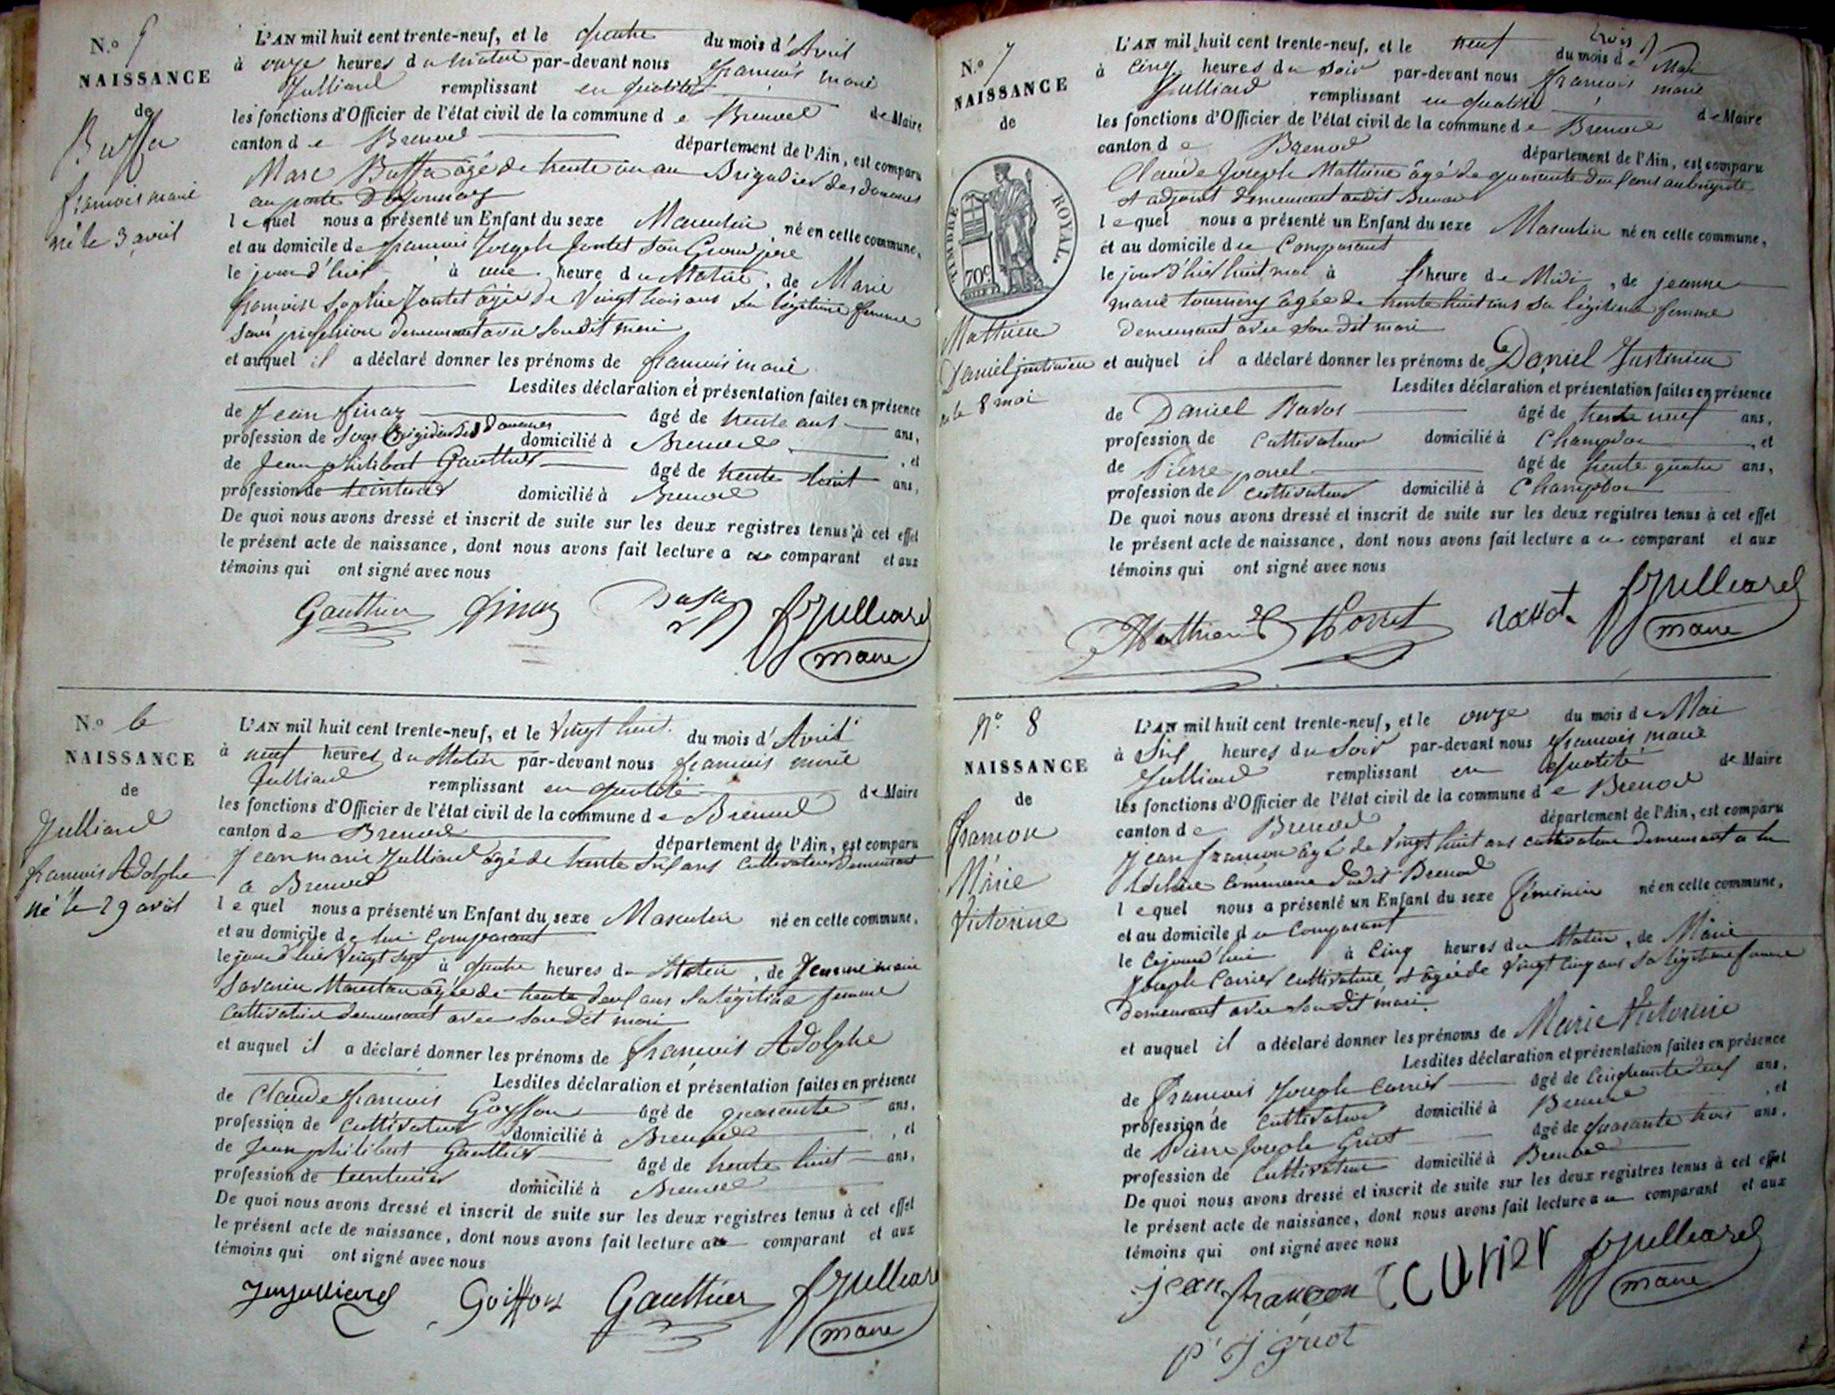 N.o 5
NAISSANCE
de
Buffa
françois marie
né le 3 avril
L'AN mil huit cent trente-neuf, et le quatre du mois d'Avril
à onze heures du matin par-devant nous françois marie
Julliard remplissant en qualité de Maire
les fonctions d'Officier de l'état civil de la commune de Brenod
canton de Brenod département de l'Ain, est comparu
Marc Buffa âgé de trente un an Brigadier des douanes
au poste
lequel nous a présenté un Enfant du sexe Masculin né en cette commune,
et au domicile de françois Joseph Jontet son Grand père
le jour d'hier à une heure du Matin, de Marie
françoise Sophie Jontet âgée de Vingt trois ans sa légitime femme
sans profession demeurant avec son dit mari
et auquel il a déclaré donner les prénoms de françois marie
Lesdites déclaration et présentation faites en présence
de Jean Pinaz âgé de trente ans ans,
profession de sous Brigadier des Douanes domicilié à Brenod, et
de Jean philibert Gauthier âgé de trente huit ans,
profession de teinturier domicilié à Brenod
De quoi nous avons dressé et inscrit de suite sur les deux registres tenus à cet effet
le présent acte de naissance, dont nous avons fait lecture au comparant et aux
témoins qui ont signé avec nous
Gauthier Buffa fJulliard
maire
N.o 6
NAISSANCE
de
Julliard
françois Adolphe
né le 29 avril
L'AN mil huit cent trente-neuf, et le Vingt huit du mois d'Avril
à neuf heures du Matin par-devant nous françois marie
Julliard remplissant en qualité de Maire
les fonctions d'Officier de l'état civil de la commune de Brenod
canton de Brenod département de l'Ain, est comparu
Jean marie Julliard âgé de trente six ans cultivateur demeurant
à Brenod
lequel nous a présenté un Enfant du sexe Masculin né en cette commune,
et au domicile de lui Comparant
le jour d'hier Vingt sept à quatre heures du Matin, de Jeanne marie
Savarin âgée de trente deux ans sa légitime femme
cultivatrice demeurant avec son dit mari
et auquel il a déclaré donner les prénoms de françois Adolphe
Lesdites déclaration et présentation faites en présence
de Claude françois Goiffon âgé de quarante ans,
profession de cultivateur domicilié à Brenod, et
de Jean philibert Gauthier âgé de trente huit ans,
profession de teinturier domicilié à Brenod
De quoi nous avons dressé et inscrit de suite sur les deux registres tenus à cet effet
le présent acte de naissance, dont nous avons fait lecture au comparant et aux
témoins qui ont signé avec nous
Jmjulliard Goiffon Gauthier fJulliard
maire
N.o 7
NAISSANCE
de
TIMBRE ROYAL.
70c
Mathieu
Daniel justinien
né le 8 mai
L'AN mil huit cent trente-neuf, et le neuf du mois de Mai
à cinq heures du soir par-devant nous françois marie
Julliard remplissant en qualité de Maire
les fonctions d'Officier de l'état civil de la commune de Brenod
canton de Brenod département de l'Ain, est comparu
Claude Joseph Mathieu âgé de quarante deux ans aubergiste
et adjoint demeurant audit Brenod
lequel nous a présenté un Enfant du sexe Masculin né en cette commune,
et au domicile du Comparant
le jour d'hier huit mai à heure de Midi, de jeanne
marie tournery âgée de trente huit ans sa légitime femme
demeurant avec son dit mari
et auquel il a déclaré donner les prénoms de Daniel Justinien
Lesdites déclaration et présentation faites en présence
de Daniel Ravot âgé de trente neuf ans,
profession de cultivateur domicilié à Champdor, et
de Pierre âgé de trente quatre ans,
profession de cultivateur domicilié à Champdor
De quoi nous avons dressé et inscrit de suite sur les deux registres tenus à cet effet
le présent acte de naissance, dont nous avons fait lecture au comparant et aux
témoins qui ont signé avec nous
Mathieu ravot fJulliard
maire
N.o 8
NAISSANCE
de
françon
Marie
Victorine
L'AN mil huit cent trente-neuf, et le onze du mois de Mai
à six heures du Soir par-devant nous françois marie
Julliard remplissant en qualité de Maire
les fonctions d'Officier de l'état civil de la commune de Brenod
canton de Brenod département de l'Ain, est comparu
Jean françon âgé de Vingt huit ans cultivateur demeurant à
commune dudit Brenod
lequel nous a présenté un Enfant du sexe féminin né en cette commune,
et au domicile du Comparant
le cejourd'hui à cinq heures du Matin, de Marie
Joseph Carrier cultivatrice et âgée de Vingt cinq ans sa légitime femme
demeurant avec son dit mari
et auquel il a déclaré donner les prénoms de Marie Victorine
Lesdites déclaration et présentation faites en présence
de François Joseph Carrier âgé de cinquante deux ans,
profession de cultivateur domicilié à Brenod, et
de Pierre Joseph Griot âgé de quarante trois ans,
profession de cultivateur domicilié à Brenod
De quoi nous avons dressé et inscrit de suite sur les deux registres tenus à cet effet
le présent acte de naissance, dont nous avons fait lecture au comparant et aux
témoins qui ont signé avec nous
jean françon fJulliard
maire
p J Griot